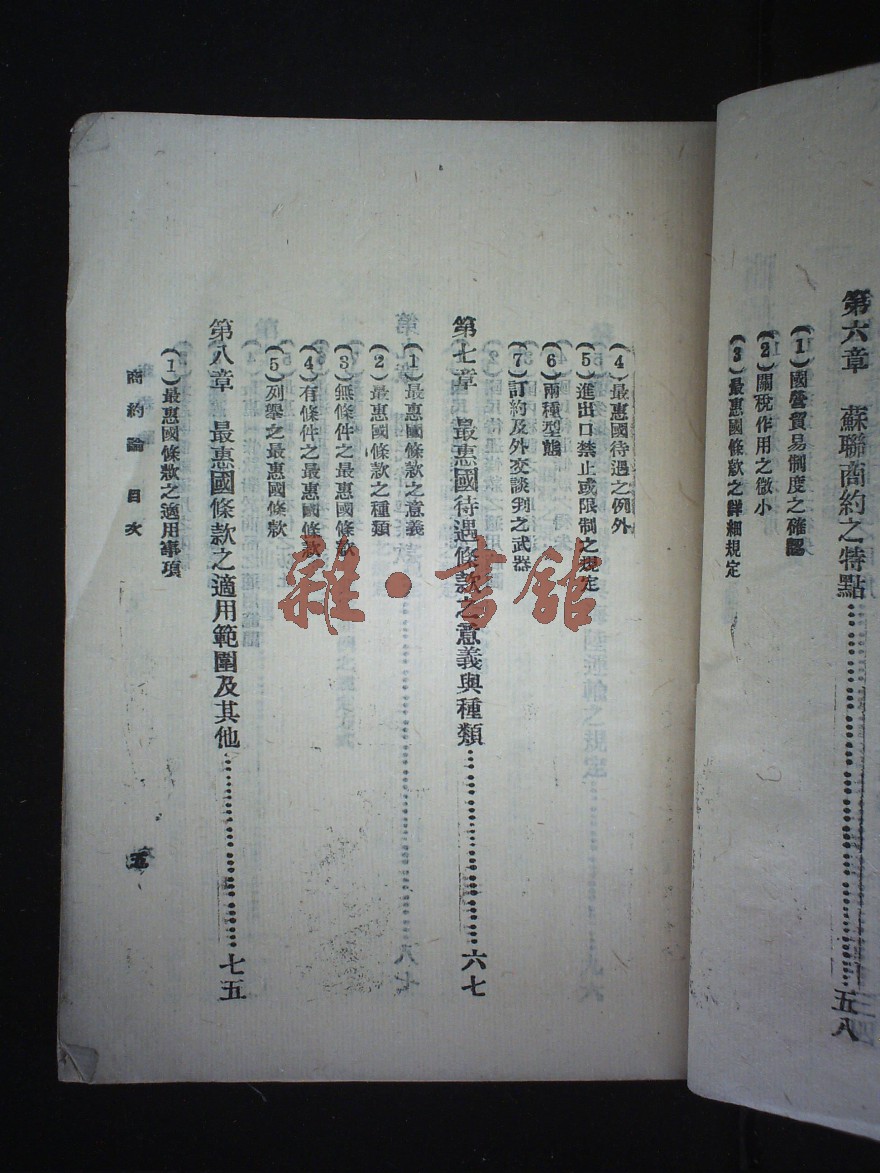 第六章 蘇聯商約之特點……五八
(1)國營貿易制度之確認
(2)關稅作用之微小
(3)最惠國條款之詳細規定
(4)最惠國待遇之例外
(5)進出口禁止或限制之規定
(6)兩種型態
(7)訂約及外交談判之武器
第七章 最惠國待遇條款之意義與種類……六七
(1)最惠國條款之意義
(2)最惠國條款之種類
(3)無條件之最惠國條款
(4)有條件之最惠國條款
(5)列舉之最惠國條款
第八章 最惠國條款之適用範圍及其他……七五
(1)最惠國條款之適用事項
商約論 目次
五
雜·書館